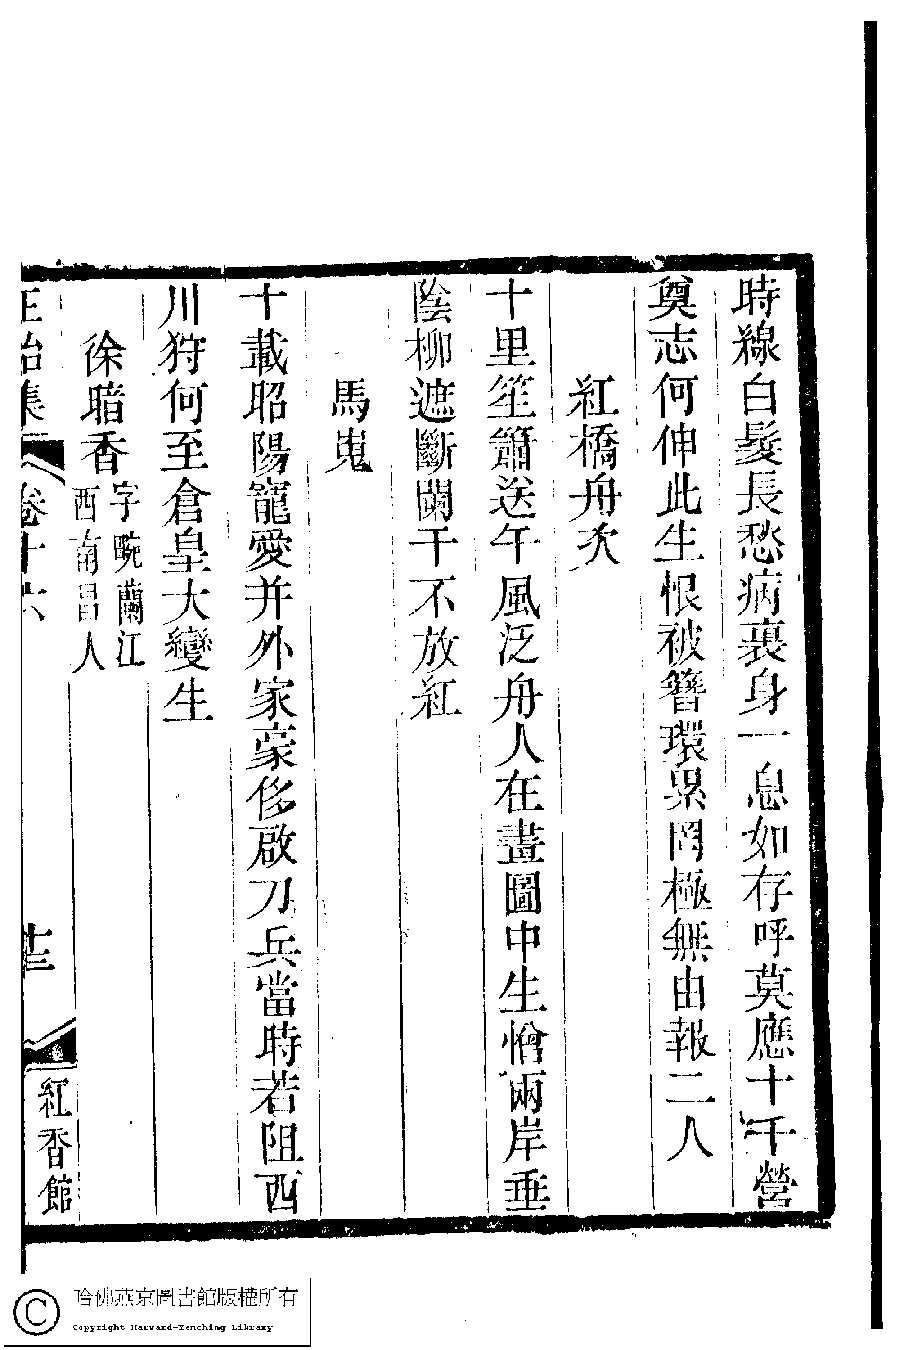 時線白髮長愁病裏身一息如存呼莫應十千營
奠志何伸此生恨被簪環累罔極無由報二人
紅橋舟次
十里笙簫送午風泛舟人在畫圖中生憎兩岸垂
陰柳遮斷闌干不放紅
馬嵬
十載昭陽寵愛并外家豪侈啟刀兵當時若阻西
川狩何至倉皇大變生
徐暗香
字畹蘭江
西南昌人
正始集
卷十六
十三
紅香館
哈佛燕京圖書館版權所有
Copyright Harvard-Yenching Library